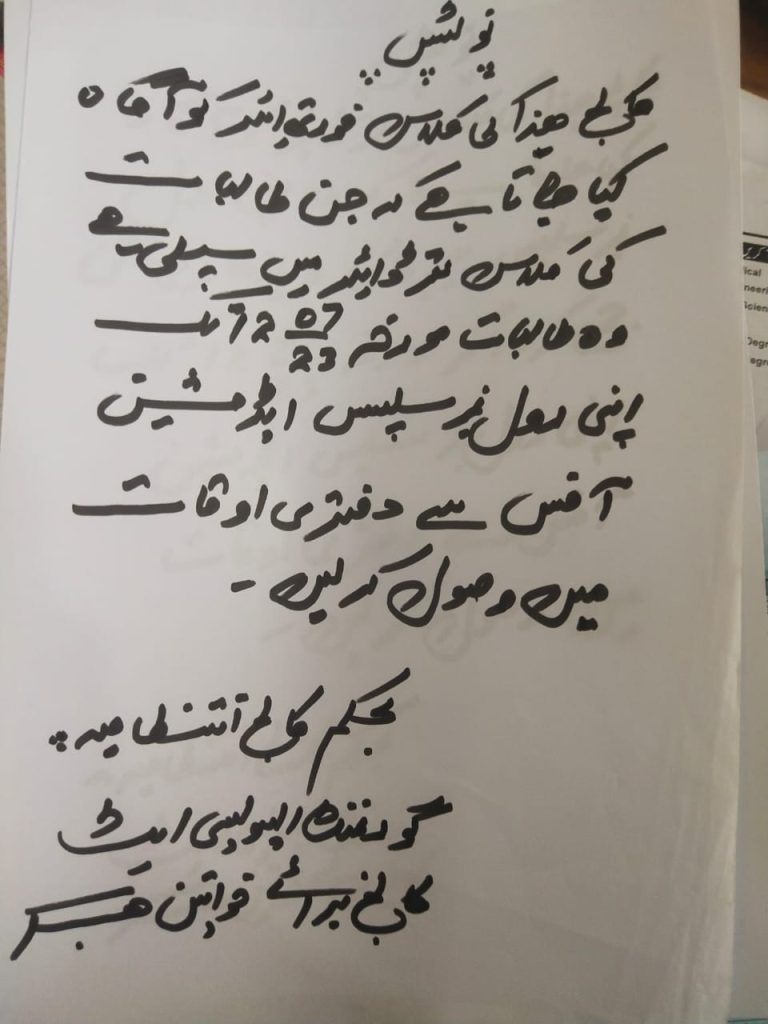 نوٹس
کالج ھذا کی کلاس فورتھ ائیر کو آگاہ
کیا جاتا ہے کہ جن طالبات
کی کلاس تھرڈ ایئر میں سپلی ہے
وہ طالبات مورخہ 07 23 تک
اپنی رول نمبر سلپس ایڈمیشن
آفس سے دفتری اوقات
میں وصول کر لیں -
بحکم کالج انتظامیہ
گورنمنٹ ایسوسی ایٹ
کالج برائے خواتین
ical
neeri
Scien
Degr
egr